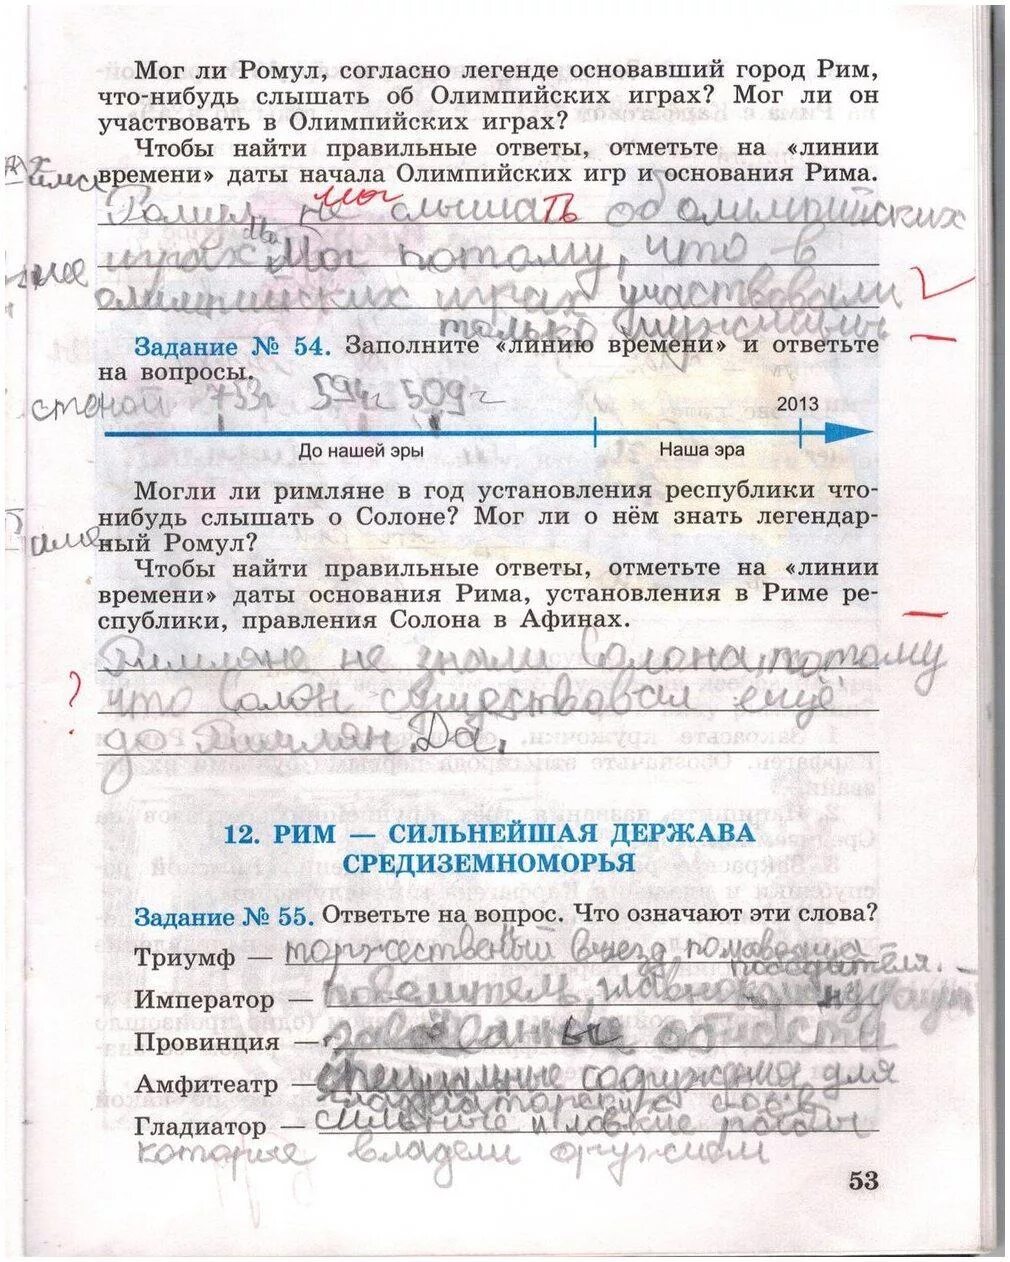 Мог ли Ромул, согласно легенде основавший город Рим,
что-нибудь слышать об Олимпийских играх? Мог ли он
участвовать в Олимпийских играх?
Чтобы найти правильные ответы, отметьте на «линии
времени» даты начала Олимпийских игр и основания Рима.
Ромул не мог слышать об олимпийских
играх. Мог потому, что в
олимпийских играх участвовали
только мужчины.
Задание № 54. Заполните «линию времени» и ответьте
на вопросы.
стеной 753г 594г 509г
2013
До нашей эры Наша эра
Могли ли римляне в год установления республики что-
нибудь слышать о Солоне? Мог ли о нём знать легендар-
ный Ромул?
Чтобы найти правильные ответы, отметьте на «линии
времени» даты основания Рима, установления в Риме ре-
спублики, правления Солона в Афинах.
Римляне не знали Солона, потому
?
что Солон существовал ещё
до Римлян. Да.
12. РИМ — СИЛЬНЕЙШАЯ ДЕРЖАВА
СРЕДИЗЕМНОМОРЬЯ
Задание № 55. Ответьте на вопрос. Что означают эти слова?
Триумф — торжественный въезд
победителя.
Император — повелитель,
Провинция — завоёванные области
Амфитеатр — специальные сооружения для
гладиаторских боёв
Гладиатор — сильные и ловкие рабы
которые владели оружием
53